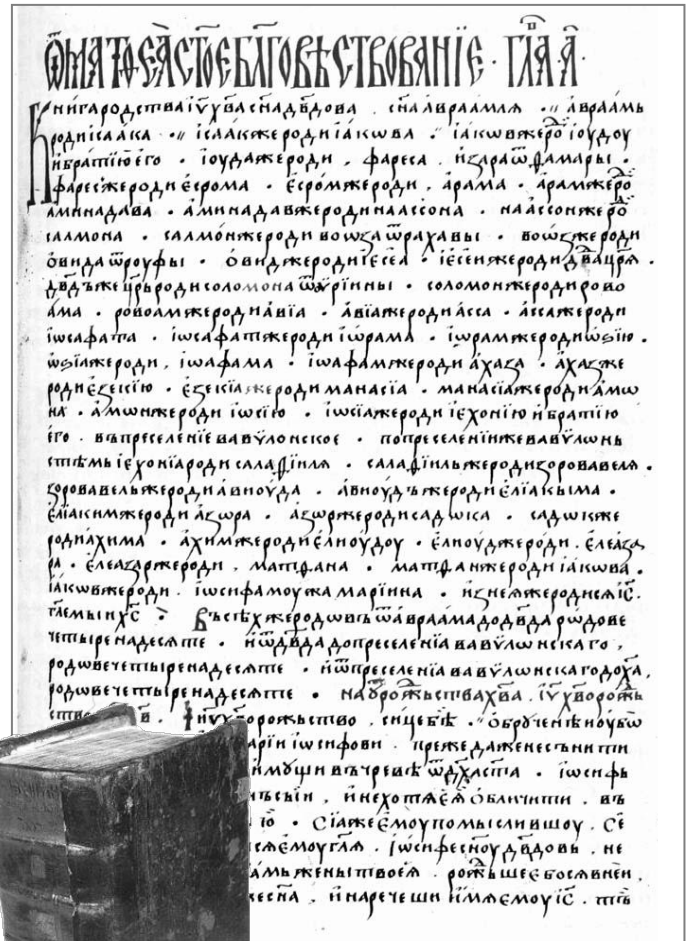 Ѿ МАТѲЕѦ СТ҃ОЕ БЛ҃ГОВѢСТВОВАНЇЕ · ГЛ҃А А҃ ·
Книга родства іѵ҃ х҃ва сн҃а дв҃дова . сн҃а авраамля ·· авраамь
роди ісаака ·· ісаакже роди іакова · іаковже ро іоудоу
и братїю его · іоудаже роди . фареса . и зара ѿ ѳамары ·
фаресже роди есрома · есромже роди . арама · арамже ро
аминадава · аминадавже роди наассона · наассонже ро
салмона · салмонже роди вооза ѿ рахавы · воозже роди
овида ѿ роуфы · овидже роди іесеа · іесеиже роди дв҃да цр҃я .
дв҃дъже цр҃ь роди соломона ѿ оурїины · соломонже роди рово
ама · ровоамже роди авїа · авїаже роди асса · ассаже роди
іѡсафата · іѡсафатже роди іѡрама · іѡрамже роди ѡзїю ·
ѡзїаже роди . іѡафама · іѡафамже роди ахаза · ахазже
роди езекїю · езекїаже роди манасїа · манасїаже роди амѡ
на · амѡнже роди іѡсїю · іѡсїаже роди іехонїю и братїю
его . въ преселенїе вавѵлонское · по преселенїиже вавѵлонь
стѣмь іехонїа роди салаѳїиля · салаѳїильже роди зоровавеля .
зоровавельже роди авиоуда · авиоудъже роди елїакыма ·
елїакимже роди азѡра · азѡрже роди садѡка · садѡкже
роди ахима · ахимже роди елиоудоу · елиоудже роди . елеаза
ра · елеазарже роди . матѳана · матѳанже роди іакова .
іаковже роди . іѡсифа моужа марїина · из неяже родися іс҃ .
гл҃емыи хс҃ · Въсѣхже родовъ ѿ авраама до дв҃да рѡдове
четыренадесяте · и ѿ дв҃да до преселенїа вавѵлѡнскаго ,
родове четыренадесяте · и ѿ преселенїа вавѵлѡнскаго до х҃а ,
родѡве четыренадесяте · На оурожьства х҃ва . іѵ҃ х҃во рожь
Іѵ҃ х҃во рожьство . сице бѣ · обрученѣ
арїи іѡсифови . прежедаже не снити
имущи въ чревѣ ѿ дх҃а ст҃а · іѡсифь
и не хотя ея обличити . въ
Сїаже емоу помысливщоу . Се
ся емоу гл҃я . іѡсифе сн҃оу дв҃довь . не
жены твоея . рожьшеебося в неи .
и наречеши имя емоу іс҃ .